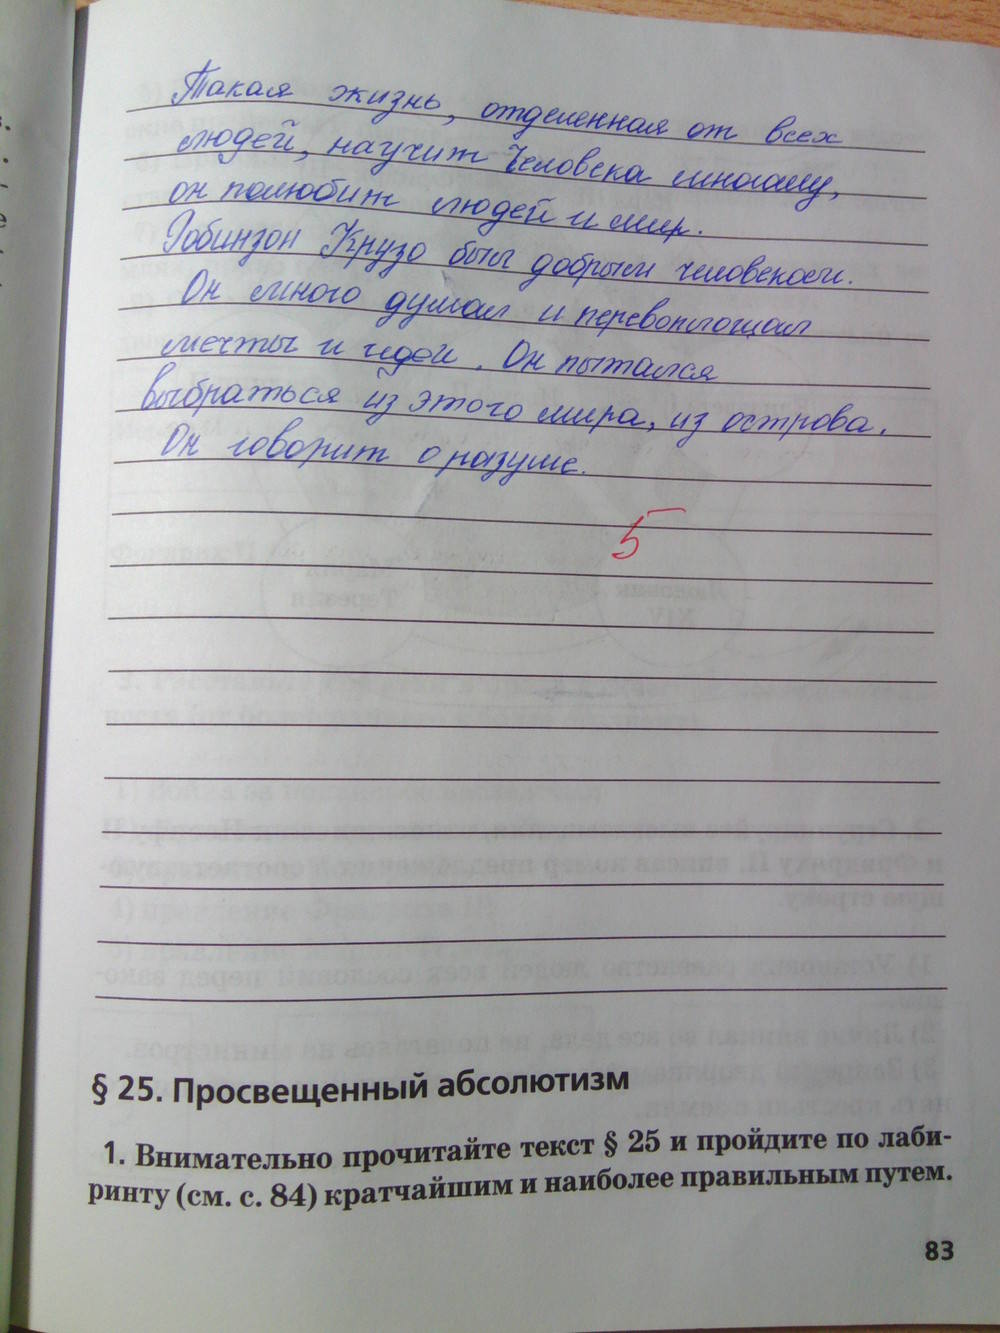 Такая жизнь, отделенная от всех
людей, научит человека многому,
он полюбит людей и мир.
Робинзон Крузо был добрым человеком.
Он много думал и перевоплощал
мечты и идеи. Он пытался
выбраться из этого мира, из острова.
Он говорит о разуме.
5
§ 25. Просвещенный абсолютизм
1. Внимательно прочитайте текст § 25 и пройдите по лаби-
ринту (см. с. 84) кратчайшим и наиболее правильным путем.
83